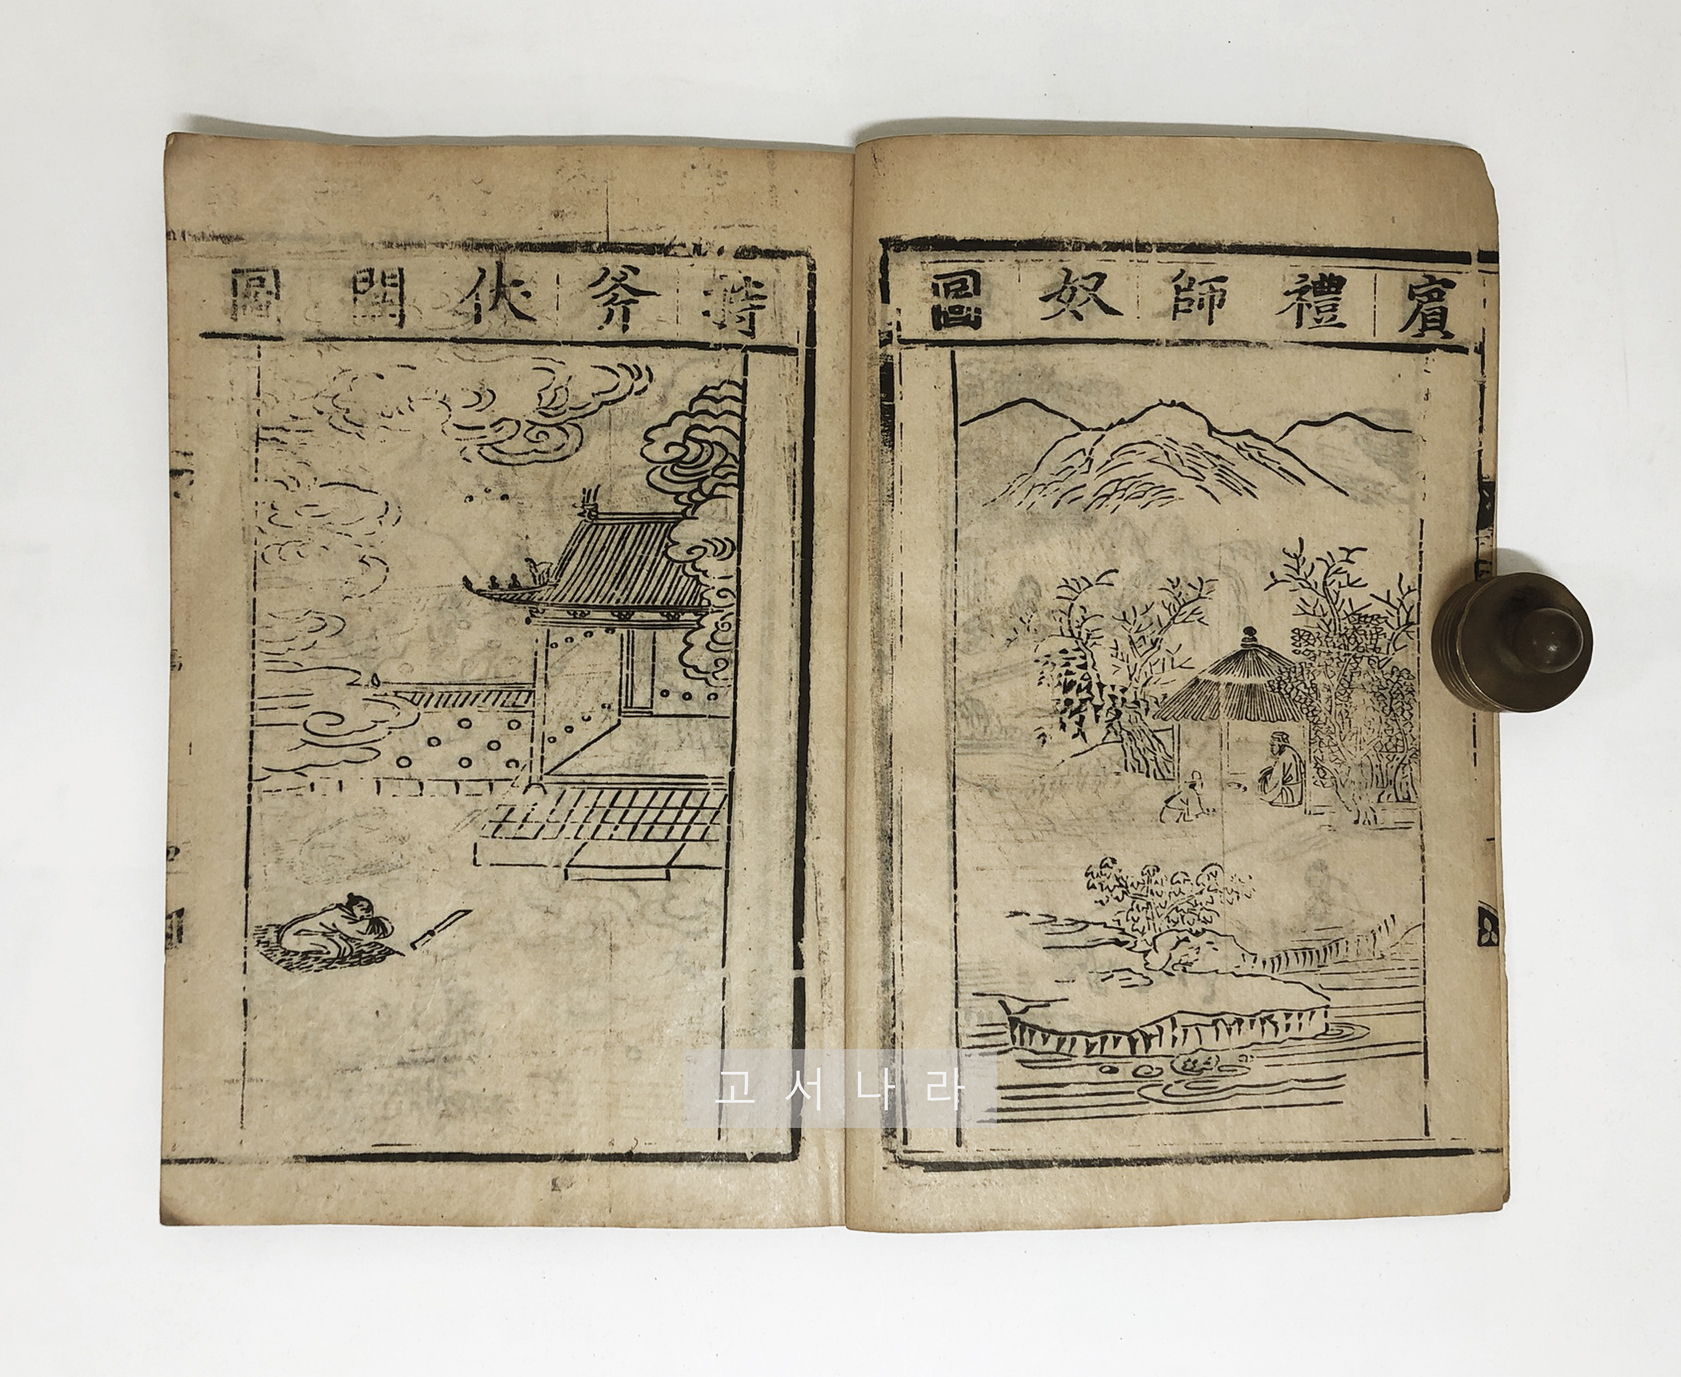 賓禮師奴圖
持斧伏闕圖
고서나라